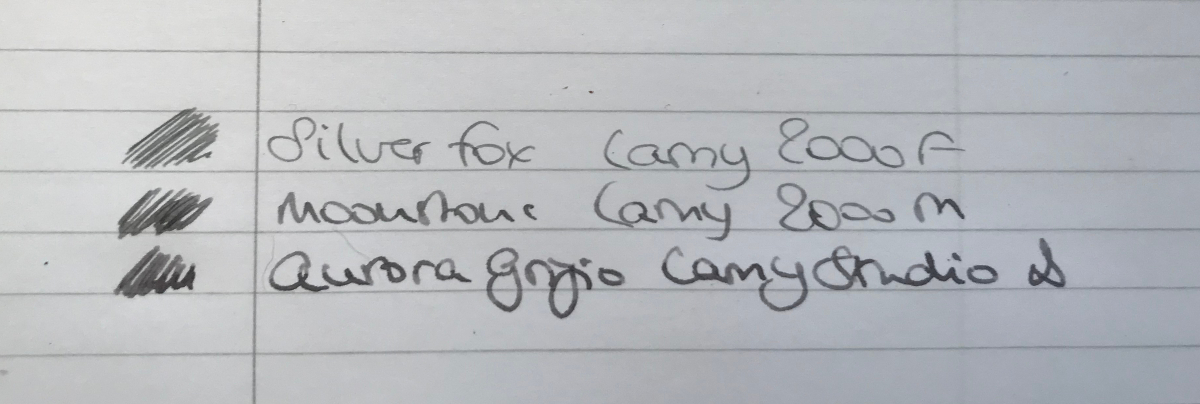 Silver fox Lamy 2000 F
Moonstone Lamy 2000 M
Aurora Grigio Lamy Studio